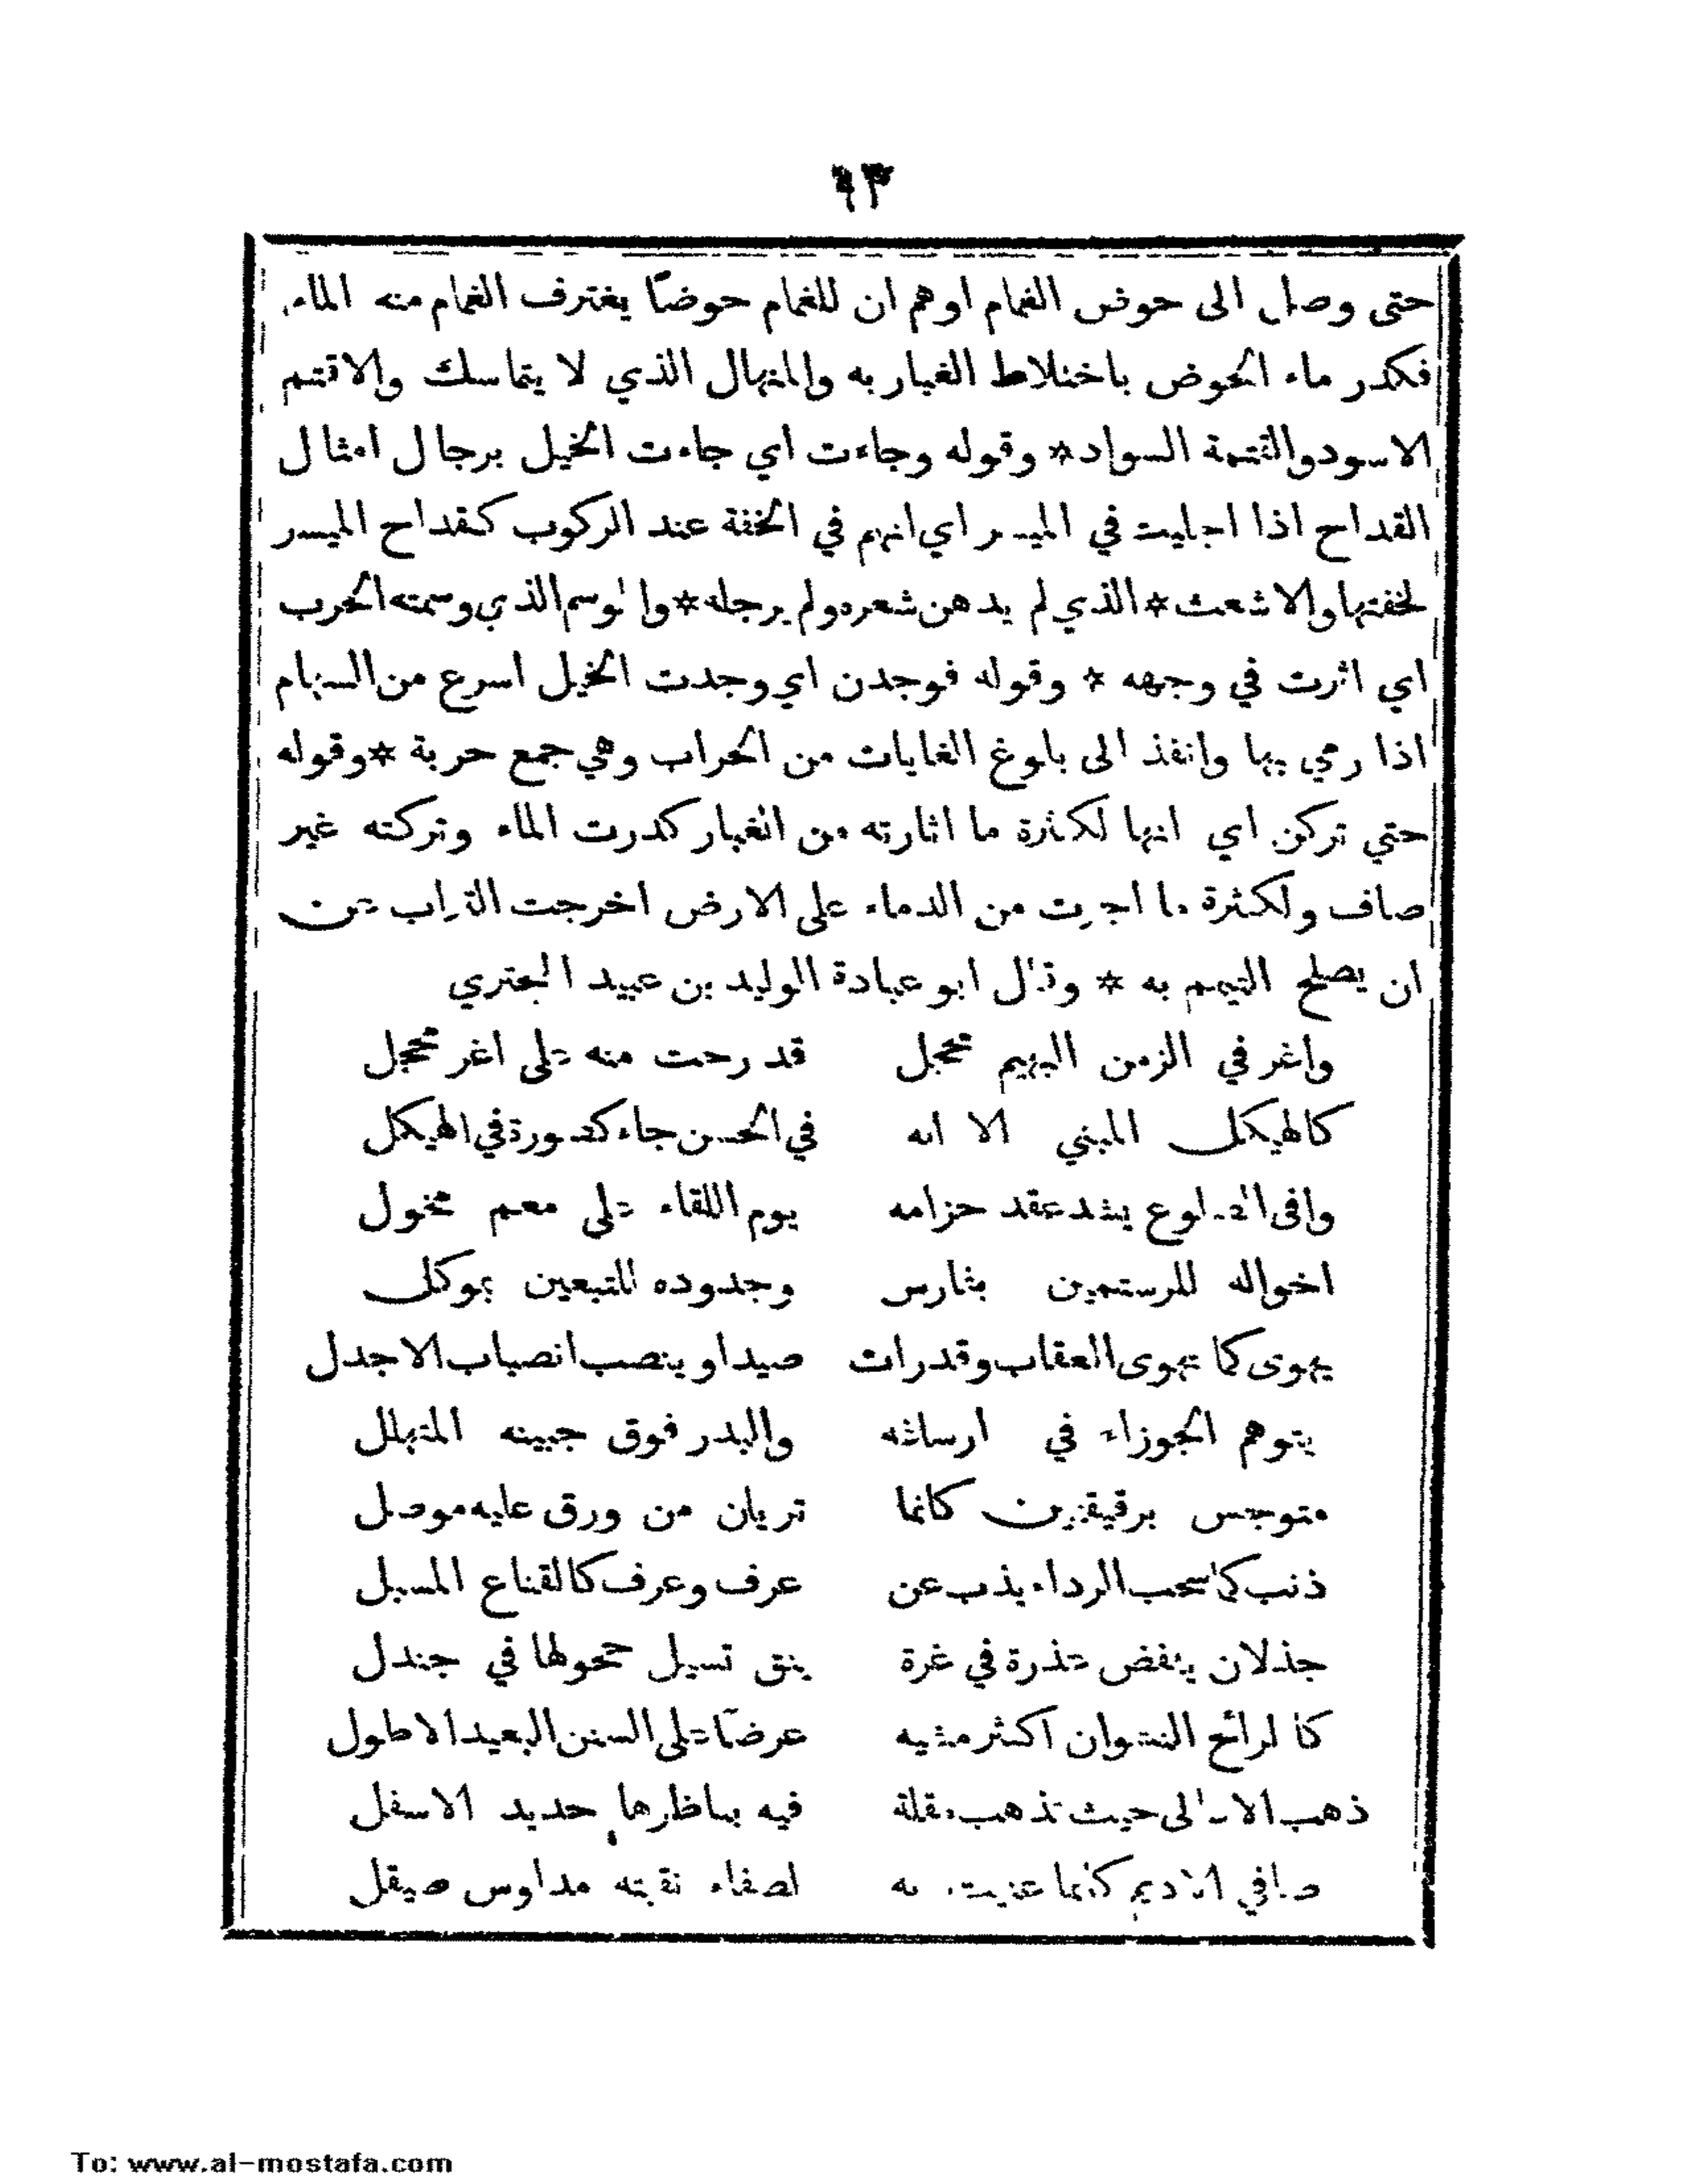 ٩٣
حتى وصل الى حوض الغمام اوهم ان للغمام حوضًا يغترف الغمام منه الماء
فكدر ماء الحوض باختلاط الغبار به والمنهال الذي لا يتماسك والاقتم
الاسود والقتمة السواد * وقوله وجاءت اي جاءت الخيل برجال امثال
القداح اذا اجليت في الميسر اي انهم في الخفة عند الركوب كقداح الميسر
لخفتها والاشعث * الذي لم يدهن شعره ولم يرجله * والموسم الذي وسمته الحرب
اي اثرت في وجهه * وقوله فوجدن اي وجدت الخيل اسرع من السهام
اذا رمي بها وانفذ الى بلوغ الغايات من الحراب وهي جمع حربة * وقوله
حتي تركن اي انها لكثرة ما اثارته من الغبار كدرت الماء وتركته غير
صاف ولكثرة ما اجرت من الدماء على الارض اخرجت التراب عن
ان يصلح التيمم به * وقال ابو عبادة الوليد بن عبيد البحتري
واغر في الزمن البهيم محجل قد رحت منه على اغر محجل
كالهيكل المبني الا انه في الحسن جاء كصورة في الهيكل
وافى الضلوع يشد عقد حزامه يوم اللقاء على معم مخول
اخواله للرستمين بفارس وجدوده للتبعين بموكل
يهوى كما تهوى العقاب وقد رات صيدا و ينصب انصباب الاجدل
يتوهم الجوزاء في ارساغه والبدر فوق جبينه المتهلل
متوجس برقيقتين كانما تريان من ورق عليه موصل
ذنب كما سحب الرداء يذب عن عرف وعرف كالقناع المسبل
جذلان ينفض عذرة في غرة ينق تسيل حجولها في جندل
كالرائح النشوان اكثر مشيه عرضًا على السنن البعيد الاطول
ذهب الاعالى حيث تذهب مقلة فيه بناظرها حديد الاسفل
صافي الاديم كانما عنيت به لصفاء نقبته مداوس صيقل
To: www.al-mostafa.com